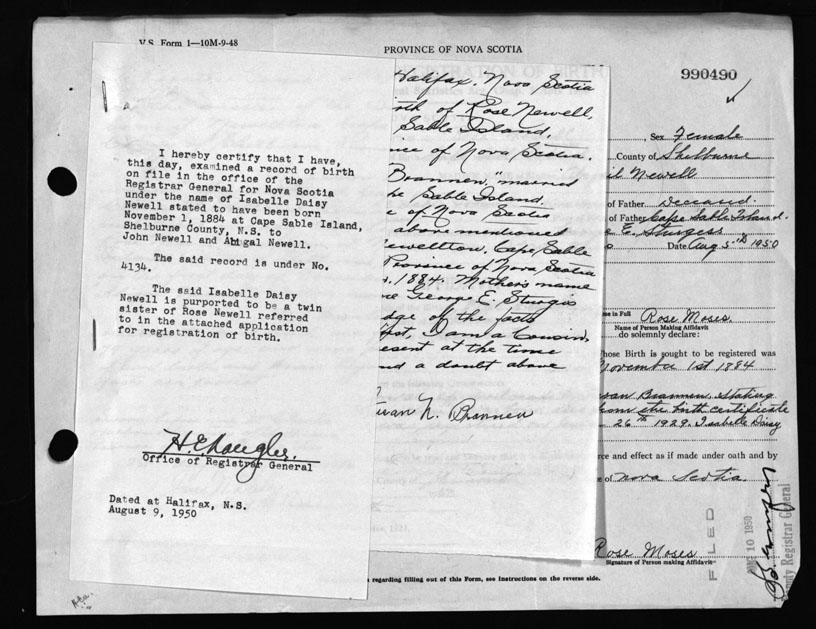 V.S. Form 1—10M-9-48
PROVINCE OF NOVA SCOTIA
990490
I hereby certify that I have,
this day, examined a record of birth
on file in the office of the
Registrar General for Nova Scotia
under the name of Isabelle Daisy
Newell stated to have been born
November 1, 1884 at Cape Sable Island,
Shelburne County, N.S. to
John Newell and Abigal Newell.
The said record is under No.
4134.
The said Isabelle Daisy
Newell is purported to be a twin
sister of Rose Newell referred
to in the attached application
for registration of birth.
Office of Registrar General
Dated at Halifax, N.S.
August 9, 1950
Halifax, Nova Scotia
of Rose Newell,
Sable Island,
of Nova Scotia.
Brannen," married
Sable Island,
of Nova Scotia
above mentioned
Newellton, Cape Sable
Province of Nova Scotia
1884. Mother's name
George E. Sturgis
of the facts
I am a Cousin,
at the time
a doubt above
N. Brannen
, Sex Female
County of Shelburne
Newell
of Father Deceased
of Father Cape Sable Island.
E. Sturgess
Date Aug 5th 1950
in Full Rose Moses.
Name of Person Making Affidavit
do solemnly declare:
Whose Birth is sought to be registered was
November 1st 1884
Brannen stating
from the birth certificate
26th 1929. Isabelle Daisy
and effect as if made under oath and by
of Nova Scotia
Rose Moses
Signature of Person making Affidavit
FILED
10 1950
Deputy Registrar General
regarding filling out of this Form, see Instructions on the reverse side.